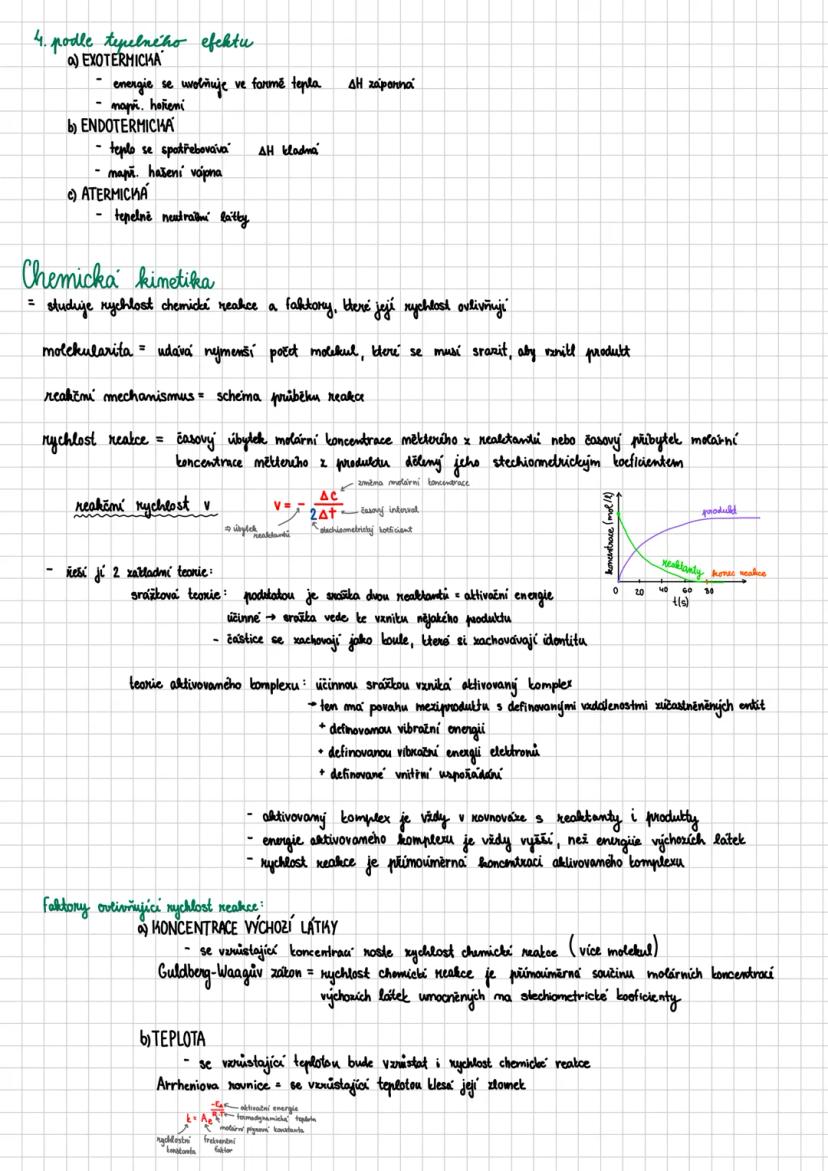 4. podle tepelného efektu
a) EXOTERMICKÁ
- energie se uvolňuje ve formě tepla ΔH záporná
- např. hoření
b) ENDOTERMICKÁ
- teplo se spotřebovává ΔH kladná
- např. hašení vápna
c) ATERMICKÁ
- tepelně neutrální látky
Chemická kinetika
= studuje rychlost chemické reakce a faktory, které její rychlost ovlivňují
molekularita = udává nejmenší počet molekul, které se musí srazit, aby vznikl produkt
reakční mechanismus = schéma průběhu reakce
rychlost reakce = časový úbytek molární koncentrace některého z reaktantů nebo časový přibytek molární
koncentrace některého z produktu dělený jeho stechiometrickým koeficientem
reakční rychlost v
v = - Δc / 2Δt
změna molární koncentrace
časový interval
stechiometrický koeficient
⇒ úbytek reaktantů
koncentrace (mol/l)
produkt
reaktanty
konec reakce
0 20 40 60 80
t(s)
- řeší ji 2 základní teorie:
srážková teorie: podstatou je srážka dvou reaktantů = aktivační energie
účinné → srážka vede ke vzniku nějakého produktu
- částice se zachovají jako koule, které si zachovávají identitu
teorie aktivovaného komplexu: účinnou srážkou vzniká aktivovaný komplex
→ ten má povahu meziproduktu s definovanými vzdálenostmi zúčastněněných entit
+ definovanou vibrační energií
+ definovanou vibrační energií elektronů
+ definované vnitřní uspořádání
- aktivovaný komplex je vždy v rovnováze s reaktanty i produkty
- energie aktivovaného komplexu je vždy vyšší, než energie výchozích látek
- rychlost reakce je přímoúměrná koncentraci aktivovaného komplexu
Faktory ovlivňující rychlost reakce:
a) KONCENTRACE VÝCHOZÍ LÁTKY
- se vzrůstající koncentrací roste rychlost chemické reakce (více molekul)
Guldberg-Waagův zákon = rychlost chemické reakce je přímoúměrná součinu molárních koncentrací
výchozích látek umocněných na stechiometrické koeficienty
b) TEPLOTA
- se vzrůstající teplotou bude vzrůstat i rychlost chemické reakce
Arrheniova rovnice = se vzrůstající teplotou klesá její zlomek
k = A e^(-EA / R·T)
aktivační energie
termodynamická teplota
molární plynová konstanta
rychlostní konstanta
frekvenční faktor